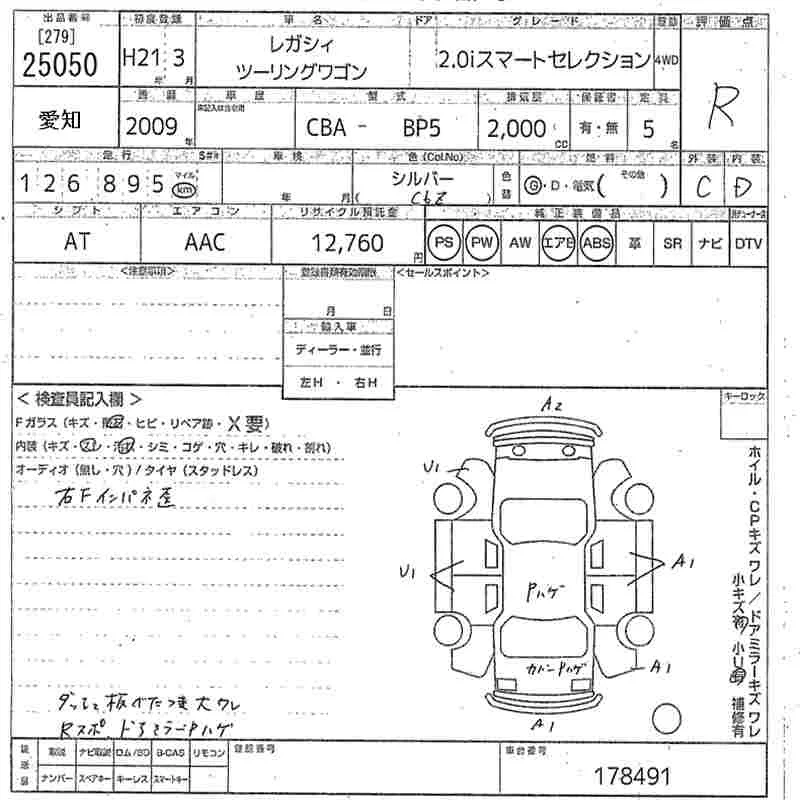 出品番号 初度登録 車名 ドア グレード 評価点
[279]
25050 H21 3 レガシィ ツーリングワゴン 2.0iスマートセレクション 4WD R
年 月
愛知
車歴 型式 排気量 保証書 定員
2009 CBA - BP5 2,000 有・無 5
年 CC 名
走行 車検 色(Col.No) 燃料 外装 内装
126,895 マイル km 年 月 シルバー 色替 G・D・電気( その他 ) C D
( C6Z )
シフト エアコン リサイクル預託金 純正装備品
AT AAC 12,760 円 PS PW AW エアB ABS 革 SR ナビ DTV
<注意事項> <セールスポイント>
月 日
輸入車
ディーラー・並行
左H ・ 右H
<検査員記入欄> キーロック
Fガラス(キズ・飛石・ヒビ・リペア跡・X要)
内装(キズ・スレ・汚れ・シミ・コゲ・穴・キレ・破れ・剥れ)
オーディオ(無し・穴)/タイヤ(スタッドレス)
右Fインパネ歪
A2
U1
U1
A1
Pハゲ
カバーPハゲ
A1
A1
ホイル・CPキズワレ/ドアミラーキズワレ
小キズ有 小凹有 補修有
ダッシュ板べたつき大ワレ
Rスポ、ドアミラーPハゲ
取説 ナビ取説 ロム/SD B-CAS リモコン 登録番号 車台番号
ナンバー スペアキー キーレス スマートキー 178491